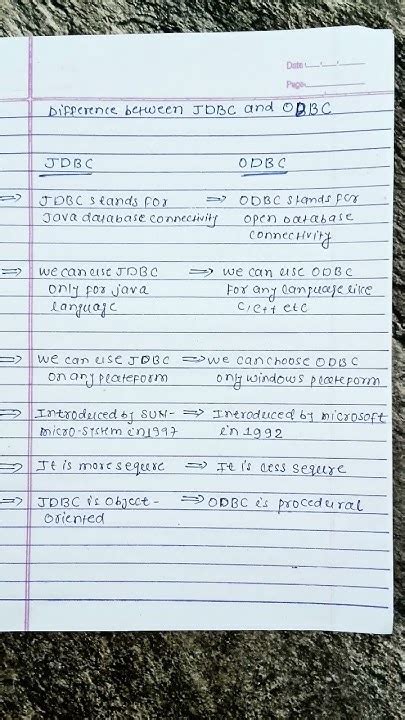 Date
Page
Difference between JDBC and ODBC
JDBC
ODBC
⇒ JDBC stands for
Java database connectivity
⇒ ODBC stands for
open Database
connectivity
⇒ we can use JDBC
only for java
language
⇒ we can use ODBC
For any language like
C, C++ etc
⇒ we can use JDBC
on any plateform
⇒ we can choose ODBC
only windows plateform
⇒ Introduced by SUN-
micro-system in 1997
⇒ Introduced by microsoft
in 1992
⇒ It is more sequre
⇒ It is less sequre
⇒ JDBC is Object-
Oriented
⇒ ODBC is procedural